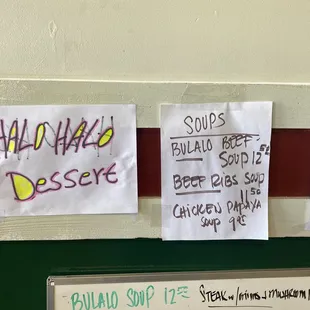 HALO HALO
Dessert
SOUPS
BULALO BEEF
SOUP 12
BEEF RIBS SOUP
11.50
CHICKEN PAPAYA
SOUP 9.95
BULALO SOUP 12 STEAK w/